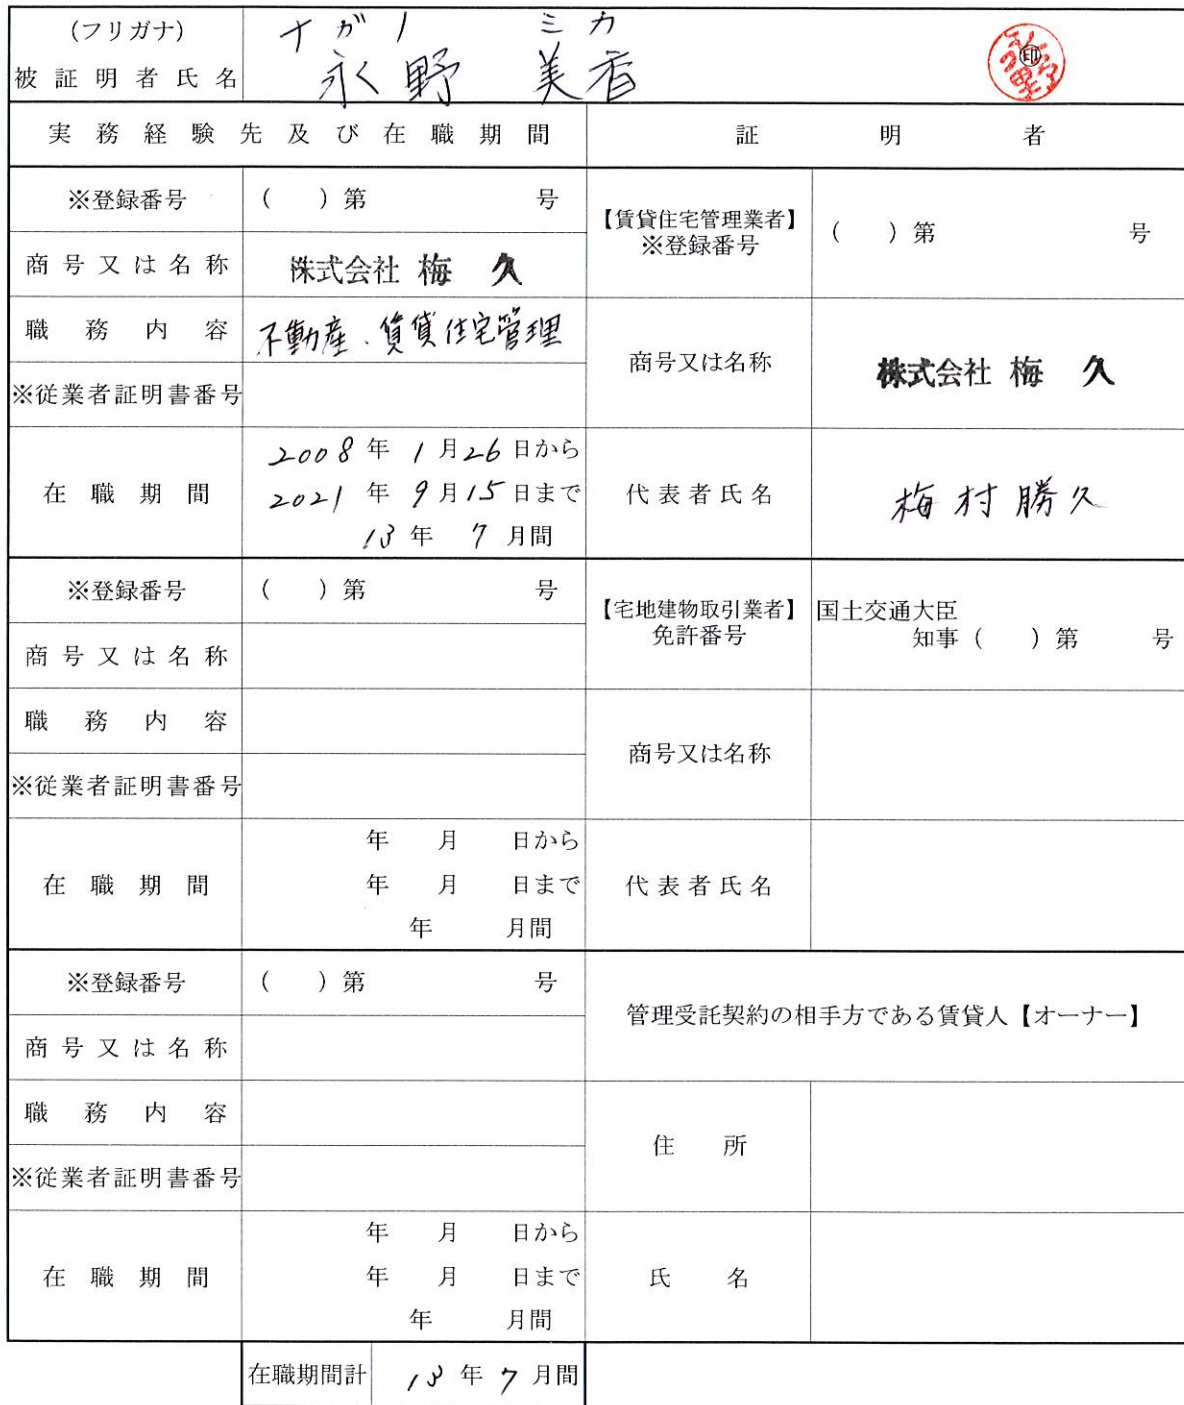 (フリガナ) ナガノ ミカ
被証明者氏名 永野 美香 印
実務経験先及び在職期間 証明者
※登録番号 ( )第 号 【賃貸住宅管理業者】 ※登録番号 ( )第 号
商号又は名称 株式会社 梅 久
職務内容 不動産.賃貸住宅管理 商号又は名称 株式会社 梅 久
※従業者証明書番号
在職期間 2008年 1月26日から
2021年 9月15日まで 代表者氏名 梅村勝久
13年 7月間
※登録番号 ( )第 号 【宅地建物取引業者】 免許番号 国土交通大臣
知事( )第 号
商号又は名称
職務内容 商号又は名称
※従業者証明書番号
在職期間 年 月 日から
年 月 日まで 代表者氏名
年 月間
※登録番号 ( )第 号 管理受託契約の相手方である賃貸人【オーナー】
商号又は名称
職務内容 住所
※従業者証明書番号
在職期間 年 月 日から
年 月 日まで 氏名
年 月間
在職期間計 13年7月間